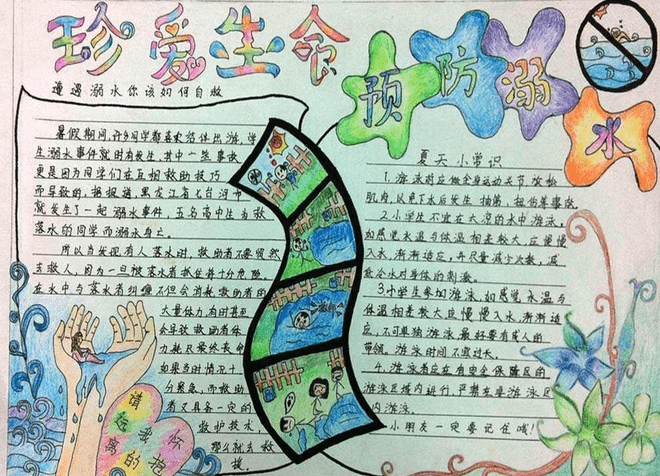 珍爱生命
预防溺水
遭遇溺水你该如何自救
暑假期间,许多同学都喜欢结伴出游,学
生溺水事件就时有发生,其中一些事故
更是因为同学们在互相救助技巧
而导致的。据报道,黑龙江省七台河市
就发生了一起溺水事件,五名高中生为救
落水的同学而溺水身亡。
所以当发现有人落水时,救助者不要贸然
去救人,因为一旦被落水者抓住将十分危险,
在水中与落水者纠缠不但会消耗救助者的
大量体力,有时甚至
会导致救助者体
力耗尽最终丧命
如果当时情况十
分紧急,而救助
者又具备一定的
救护技术,
那么就去救
援。
请远离我的怀抱
夏天小常识
1.游泳时应做全身运动关节,放松
肌肉,以免下水后发生抽筋,扭伤等事故
2.小学生不宜在太凉的水中游泳,
如感觉水温与体温相差较大应慢慢
入水,渐渐适应,并尽量减少次数,减
少冷水对身体的刺激。
3.中学生参加游泳,如感觉水温与
体温相差较大应慢慢入水,渐渐适
应,不可单独游泳,最好要有成人的
带领。游泳时间不宜过长。
4.游泳者应在有安全保障区的
游泳区域内进行,严禁在非游泳区
内游泳。
小朋友一定要记住哦!